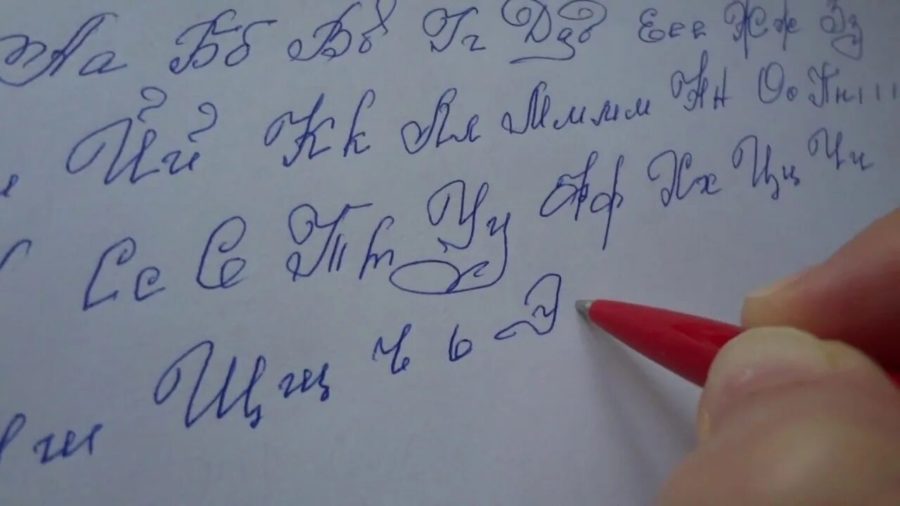 Аа Бб Вв Гг Дд Еее Жж Зз
Йй Кк Лл Мммм Нн Оо Пп
Сс С Тт Уу Фф Хх Цц Чч
ш Щщ ъ ь Э